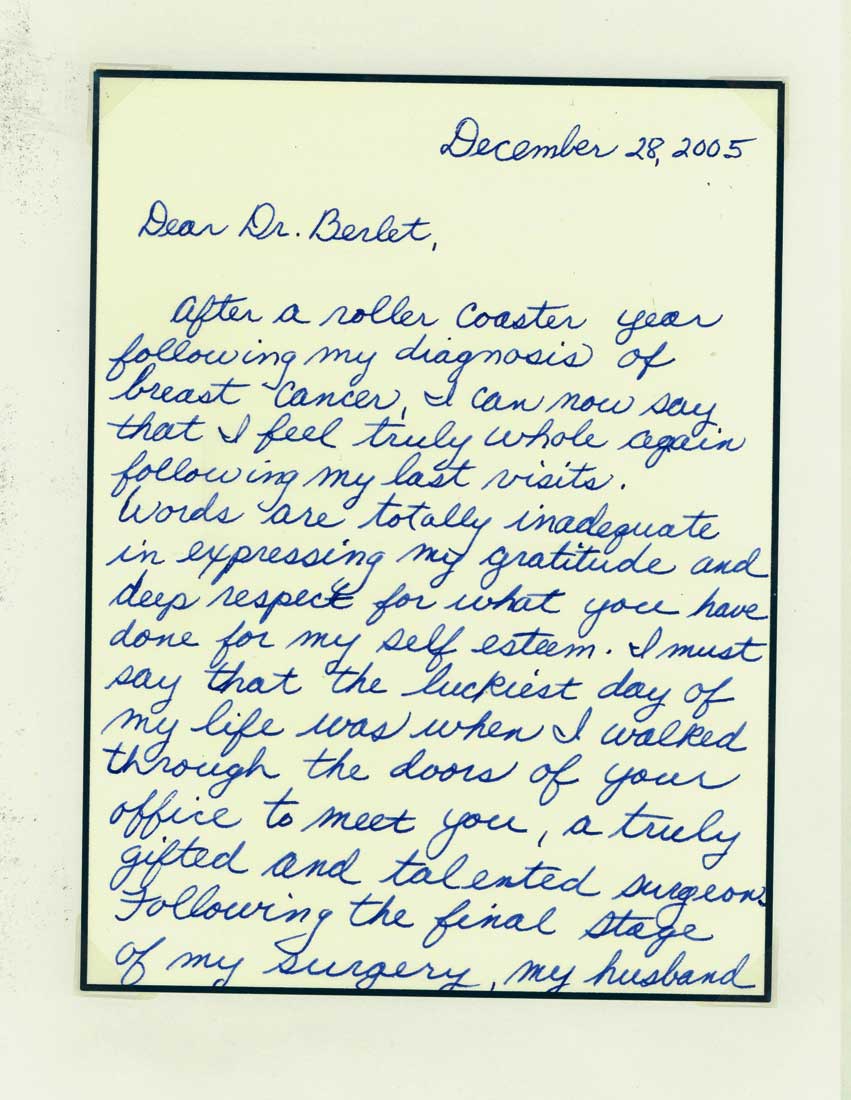 December 28, 2005
Dear Dr. Berlet,
After a roller coaster year
following my diagnosis of
breast cancer, I can now say
that I feel truly whole again
following my last visits.
Words are totally inadequate
in expressing my gratitude and
deep respect for what you have
done for my self esteem. I must
say that the luckiest day of
my life was when I walked
through the doors of your
office to meet you, a truly
gifted and talented surgeon.
Following the final stage
of my surgery, my husband